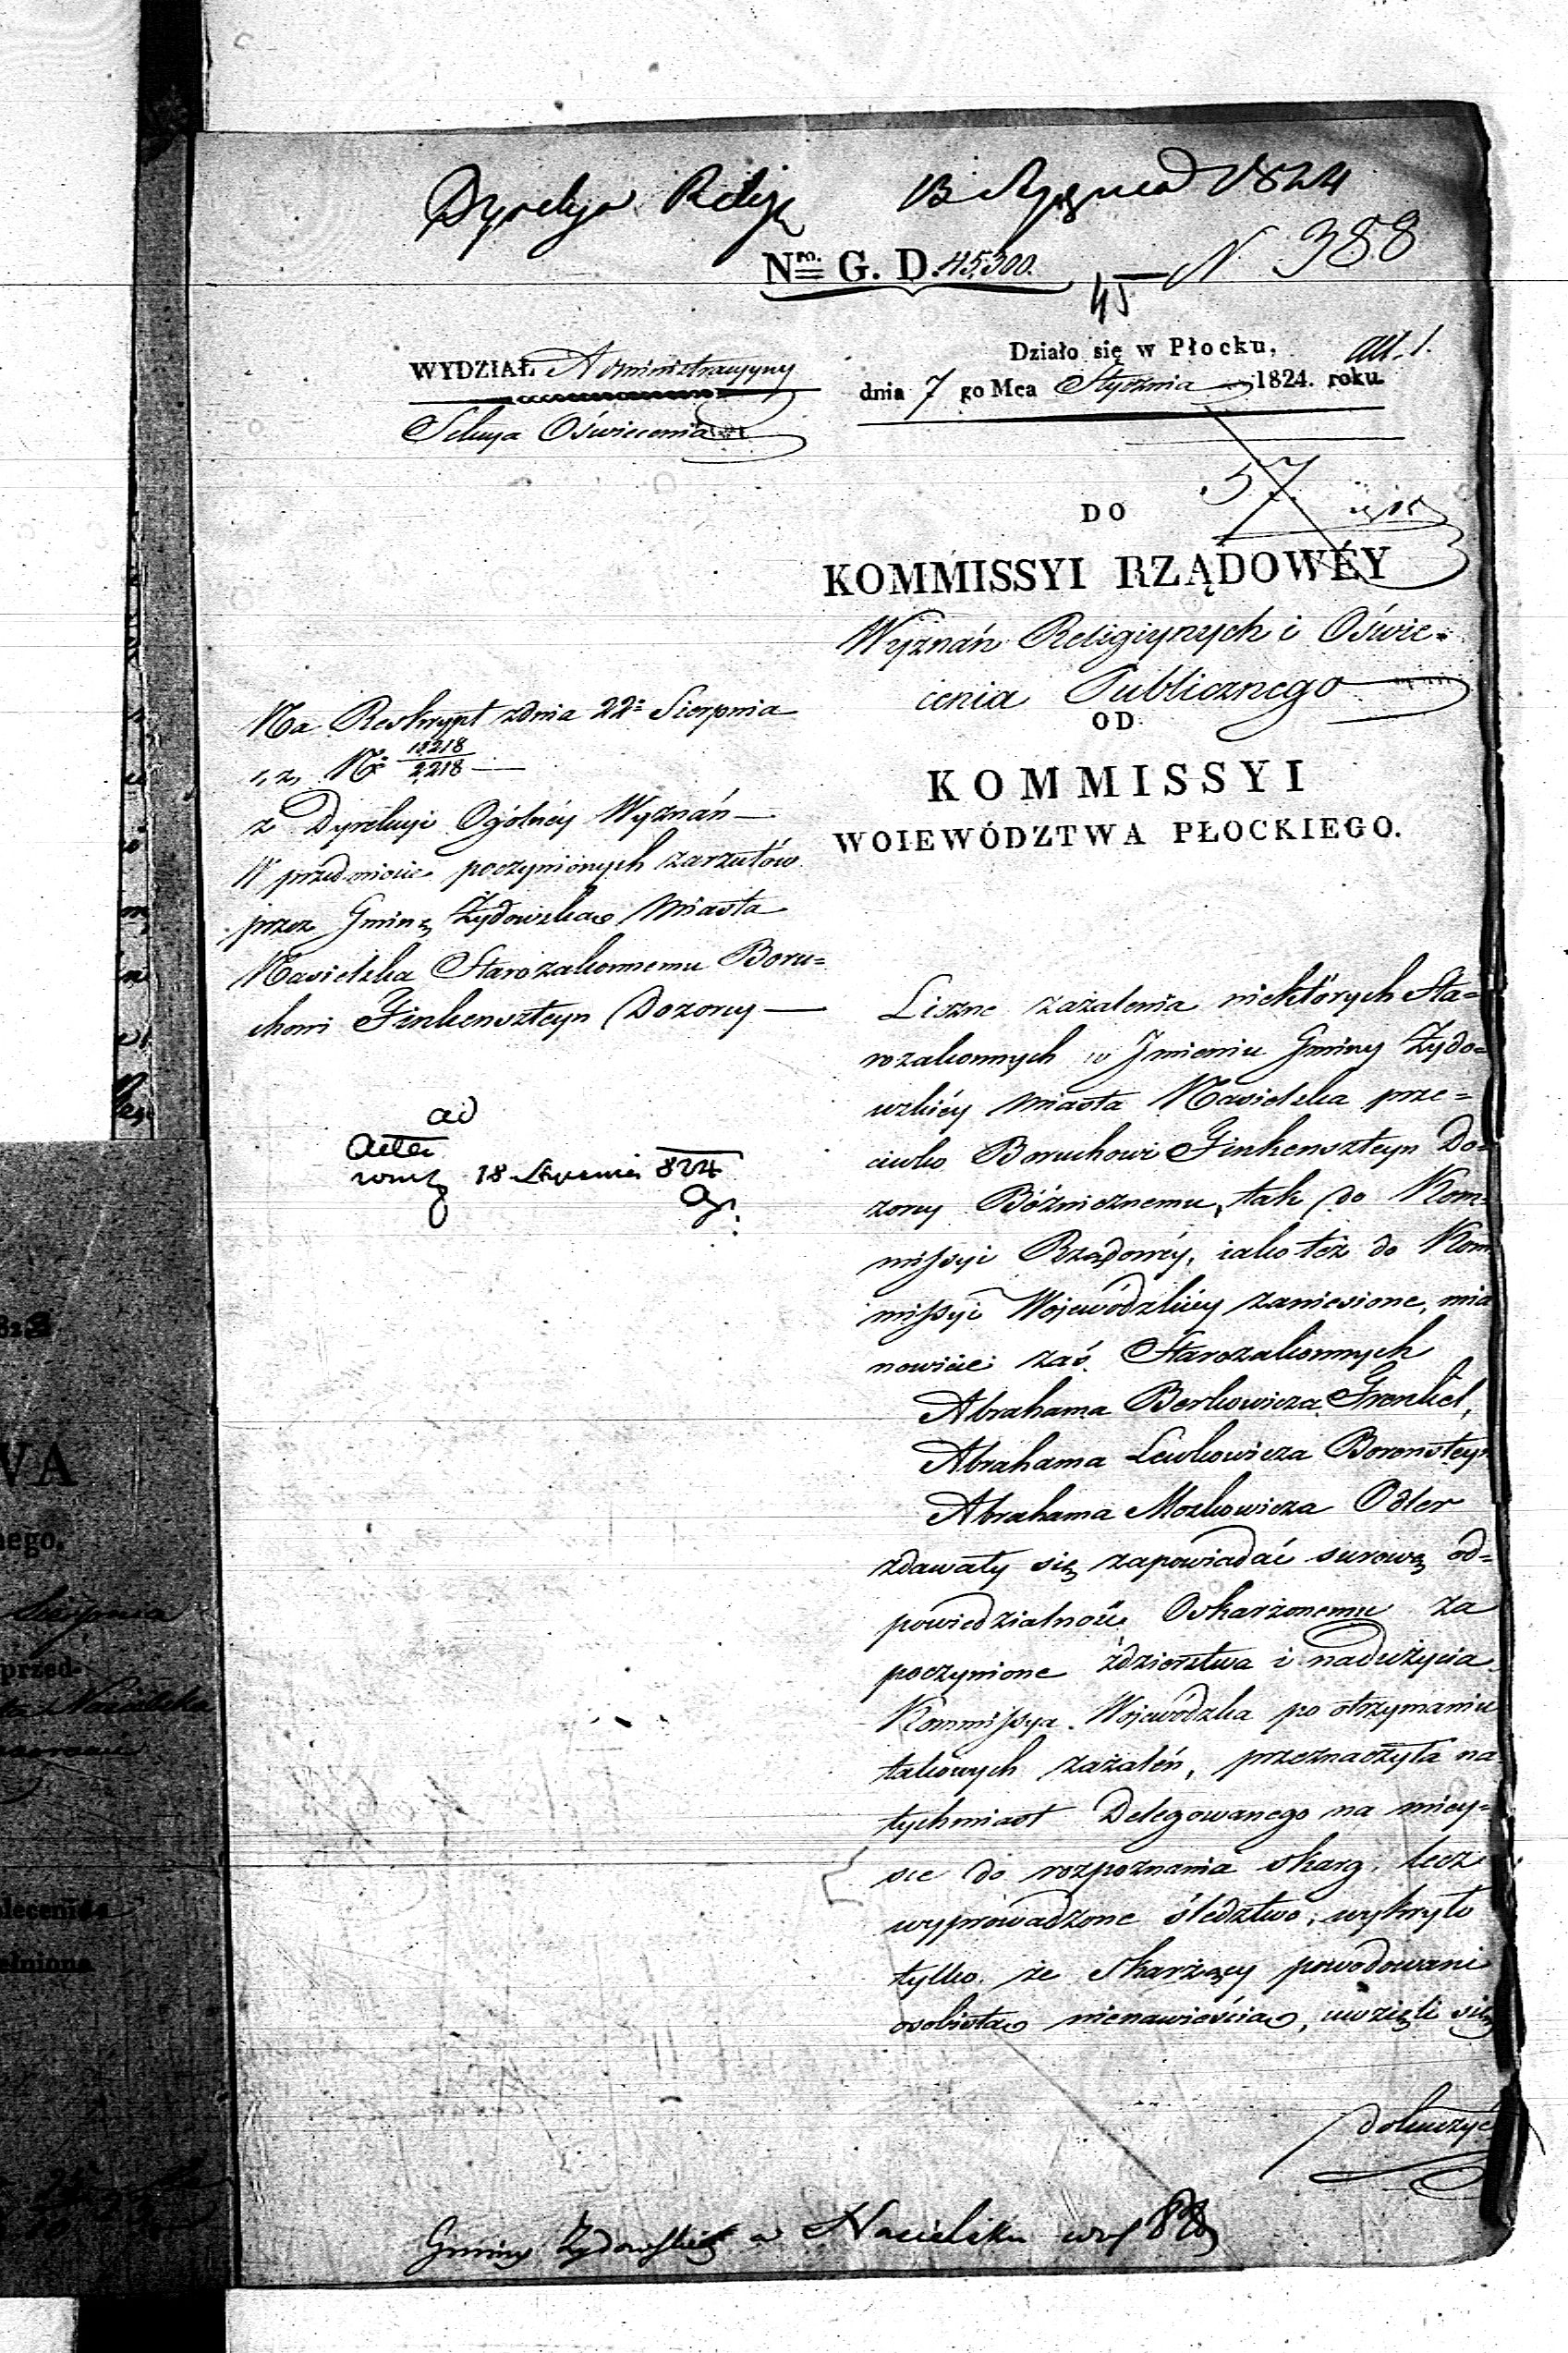 Dyrekcya Religi 13 Stycznia 1824
Nro. G. D. 45,300.
45 N 388
WYDZIAŁ Administracyyny
Sekcya Oświecenia
Działo się w Płocku,
dnia 7 go Mca Stycznia 1824. roku
all. 1.
57
DO
KOMMISSYI RZĄDOWÉY
Wyznań Religiynych i Oświe=
cenia Publicznego
OD
KOMMISSYI
WOIEWÓDZTWA PŁOCKIEGO.
Na Reskrypt zdnia 22= Sierpnia
r, z, No
2,218
z Dyrekcyi Ogólnéy Wyznań
W przedmiocie poczynionych zarzutów
przez Gminę Żydowską Miasta
Nasielska Starozakonnemu Boru=
chowi Finkenszteyn Dozorcy
ad
Acta
18 Stycznia 824
Liczne zażalenia niektórych Sta=
rozakonnych w Jmieniu Gminy Żydo=
wskiéy Miasta Nasielska prze=
ciwko Boruchowi Finkenszteyn Do=
zorcy Bóżnicznemu, tak do Kom=
missyi Rządowéy, iako też do Kom
missyi Wojewódzkiéy zaniesione, mia
nowicie zaś Starozakonnych
Abrahama Berkowicza Frenkel,
Abrahama Lewkowicza Boronsteyn
Abrahama Moszkowicza Odler
zdawały się zapowiadać surową od=
powiedzialność Oskarżonemu za
poczynione zdzierstwa i nadużycia
Kommissya Wojewódzka po otrzymaniu
takowych zażaleń, przeznaczyła na
tychmiast Delegowanego na miey=
sce do rozpoznania skarg, lecz
wyprowadzone śledztwo, wykryło
tylko, że skarżący powodowani
osobistą nienawiścią, uwzięli się
dokuczyć
Gminy Żydowskiey w Nasielsku